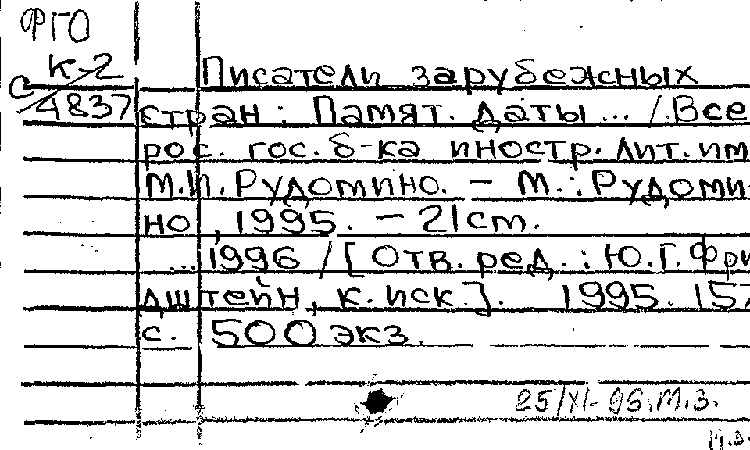 ФГО
К-2
С/4837
Писатели зарубежных
стран: Памят. даты ... /. Все
рос. гос. б-ка иностр. лит. им
М.И. Рудомино. - М.: Рудоми
но, 1995. - 21 cm.
... 1996 / [Отв. ред.: Ю.Г. Фри
дштейн, к. иск.]. 1995. 157
с. 500 экз.
25/XI- 96. М.З.